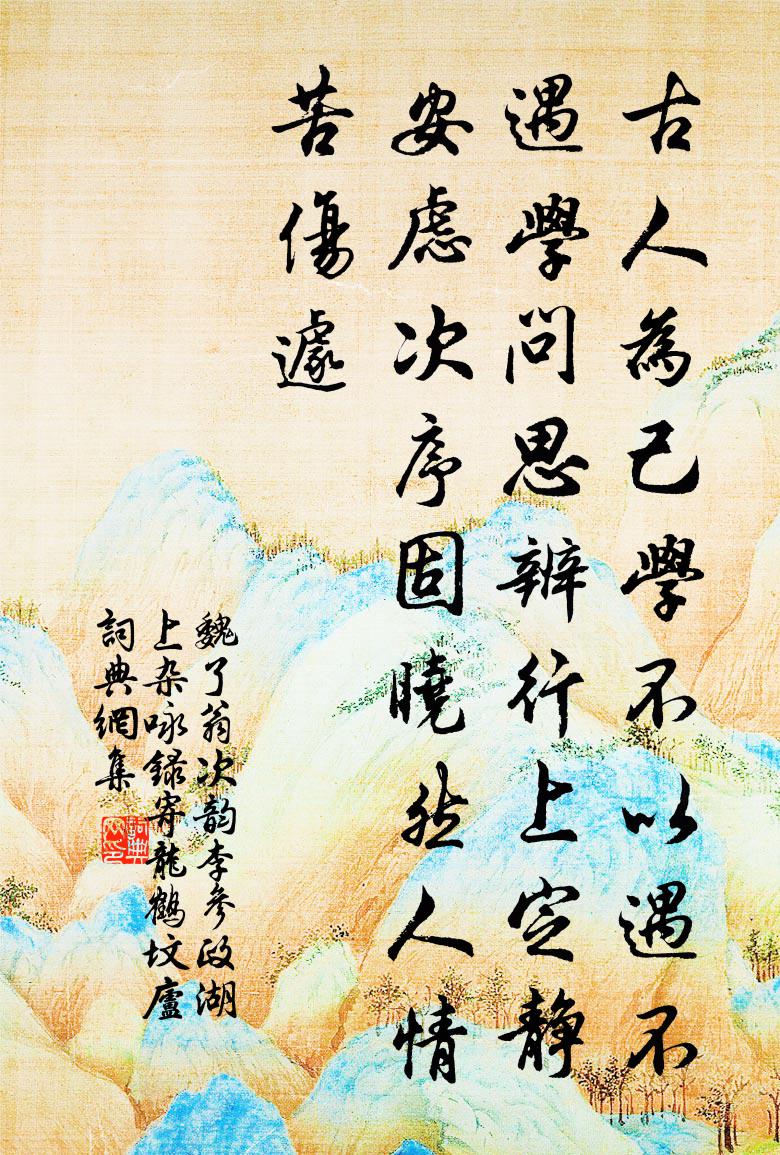 古人為己學不以遇不
遇學問思辨行上定靜
安慮次序固曉然人情
苦傷遽
魏了翁次韵李參政湖
上杂咏錄寄龍鶴墳廬
詞典網集